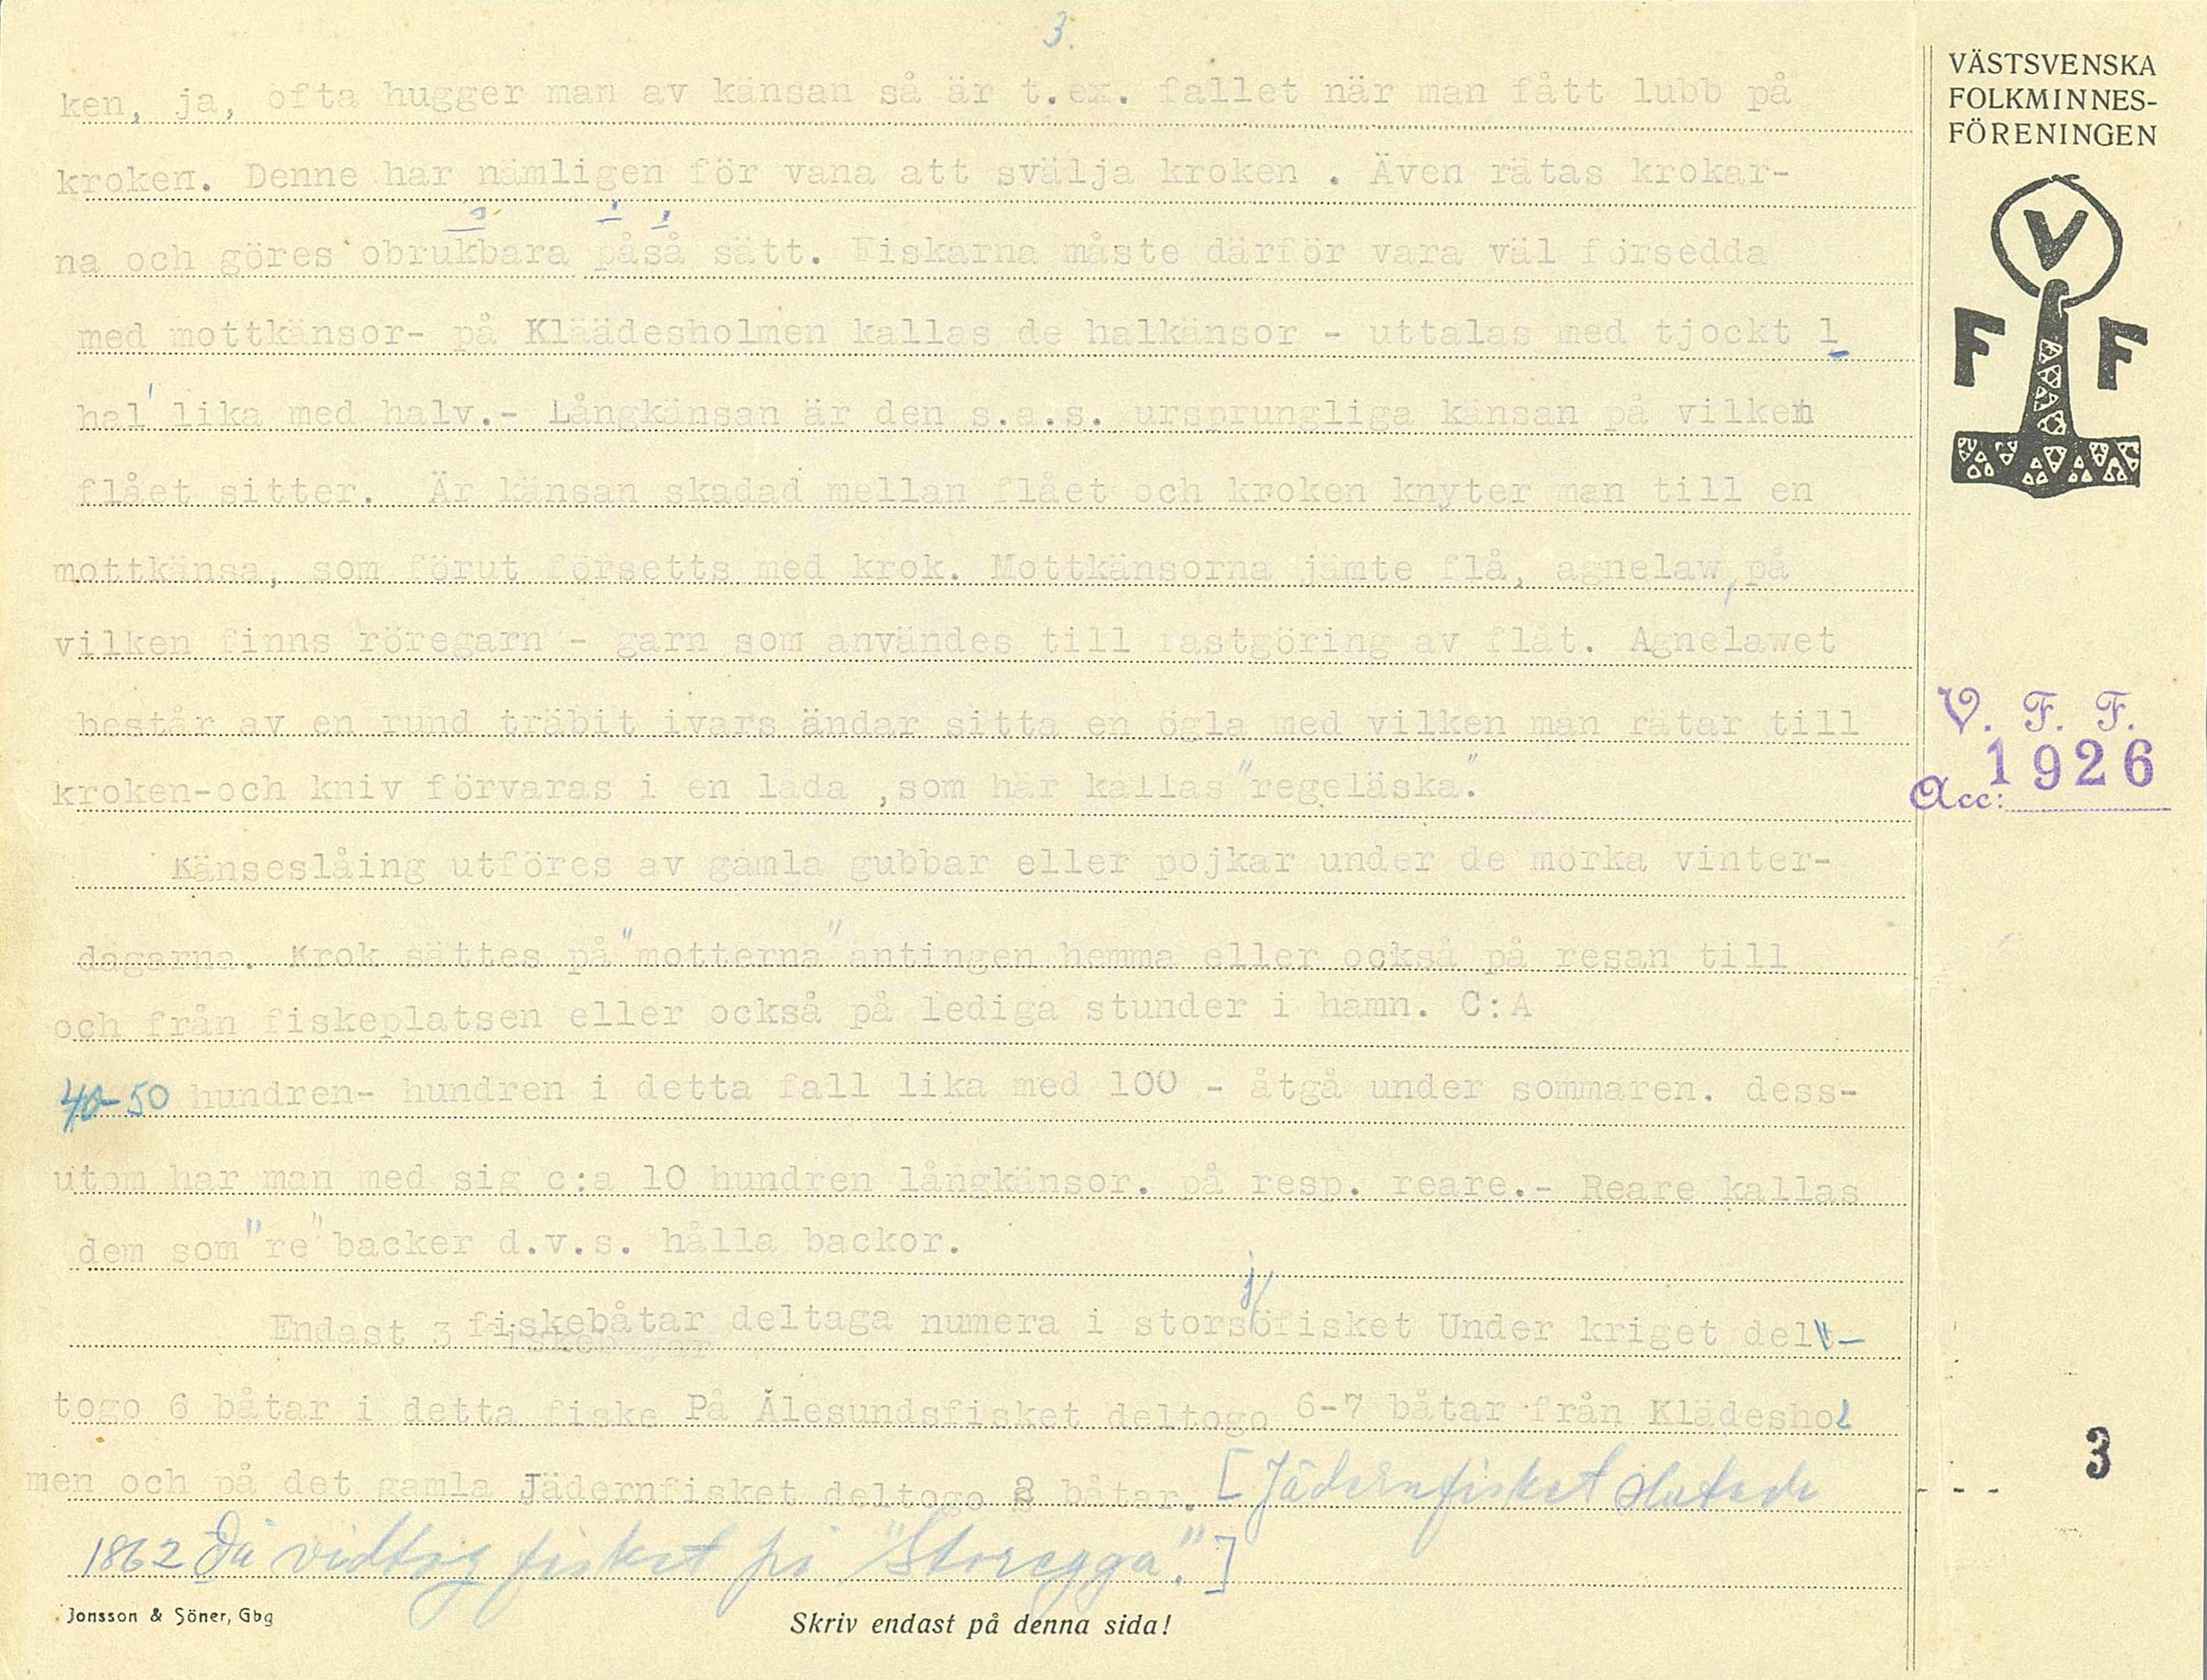 3.
ken, ja, ofta hugger man av känsan så är t.ex. fallet när man fått lubb på
kroken. Denne har nämligen för vana att svälja kroken . Även rätas krokar-
na och göres obrukbara påså sätt. Fiskarna måste därför vara väl försedda
med mottkänsor- på Kläädesholmen kallas de halkänsor - uttalas med tjockt l
hal' lika med halv.- Långkänsan är den s.a.s. ursprungliga känsan på vilken
flået sitter. Är känsan skadad mellan flået och kroken knyter man till en
mottkänsa, som förut försetts med krok. Mottkänsorna jämte flå, agnelaw, på
vilken finns röregarn - garn som användes till fastgöring av flåt. Agnelawet
består av en rund träbit ivars ändar sitta en ögla med vilken man rätar till
kroken-och kniv förvaras i en låda ,som här kallas "regeläska".
Känseslåing utföres av gamla gubbar eller pojkar under de mörka vinter-
dagarna. Krok sättes på "motterna" antingen hemma eller också på resan till
och från fiskeplatsen eller också på lediga stunder i hamn. C:A
40-50 hundren- hundren i detta fall lika med 100 - åtgå under sommaren. dess-
utom har man med sig c:a 10 hundren långkänsor. på resp. reare.- Reare kallas
dem som "re" backer d.v.s. hålla backor.
Endast 3 fiskebåtar deltaga numera i storsjöfisket Under kriget del-
togo 6 båtar i detta fiske På Ålesundsfisket deltogo 6-7 båtar från Klädeshol
men och på det gamla Jädernfisket deltogo 8 båtar. [Jädernfisket slutade
1862 Då vidtog fisket på "Storegga".]
Jonsson & Söner, Gbg
Skriv endast på denna sida!
VÄSTSVENSKA
FOLKMINNES-
FÖRENINGEN
V
F F
V. F. F.
1926
Acc:
3